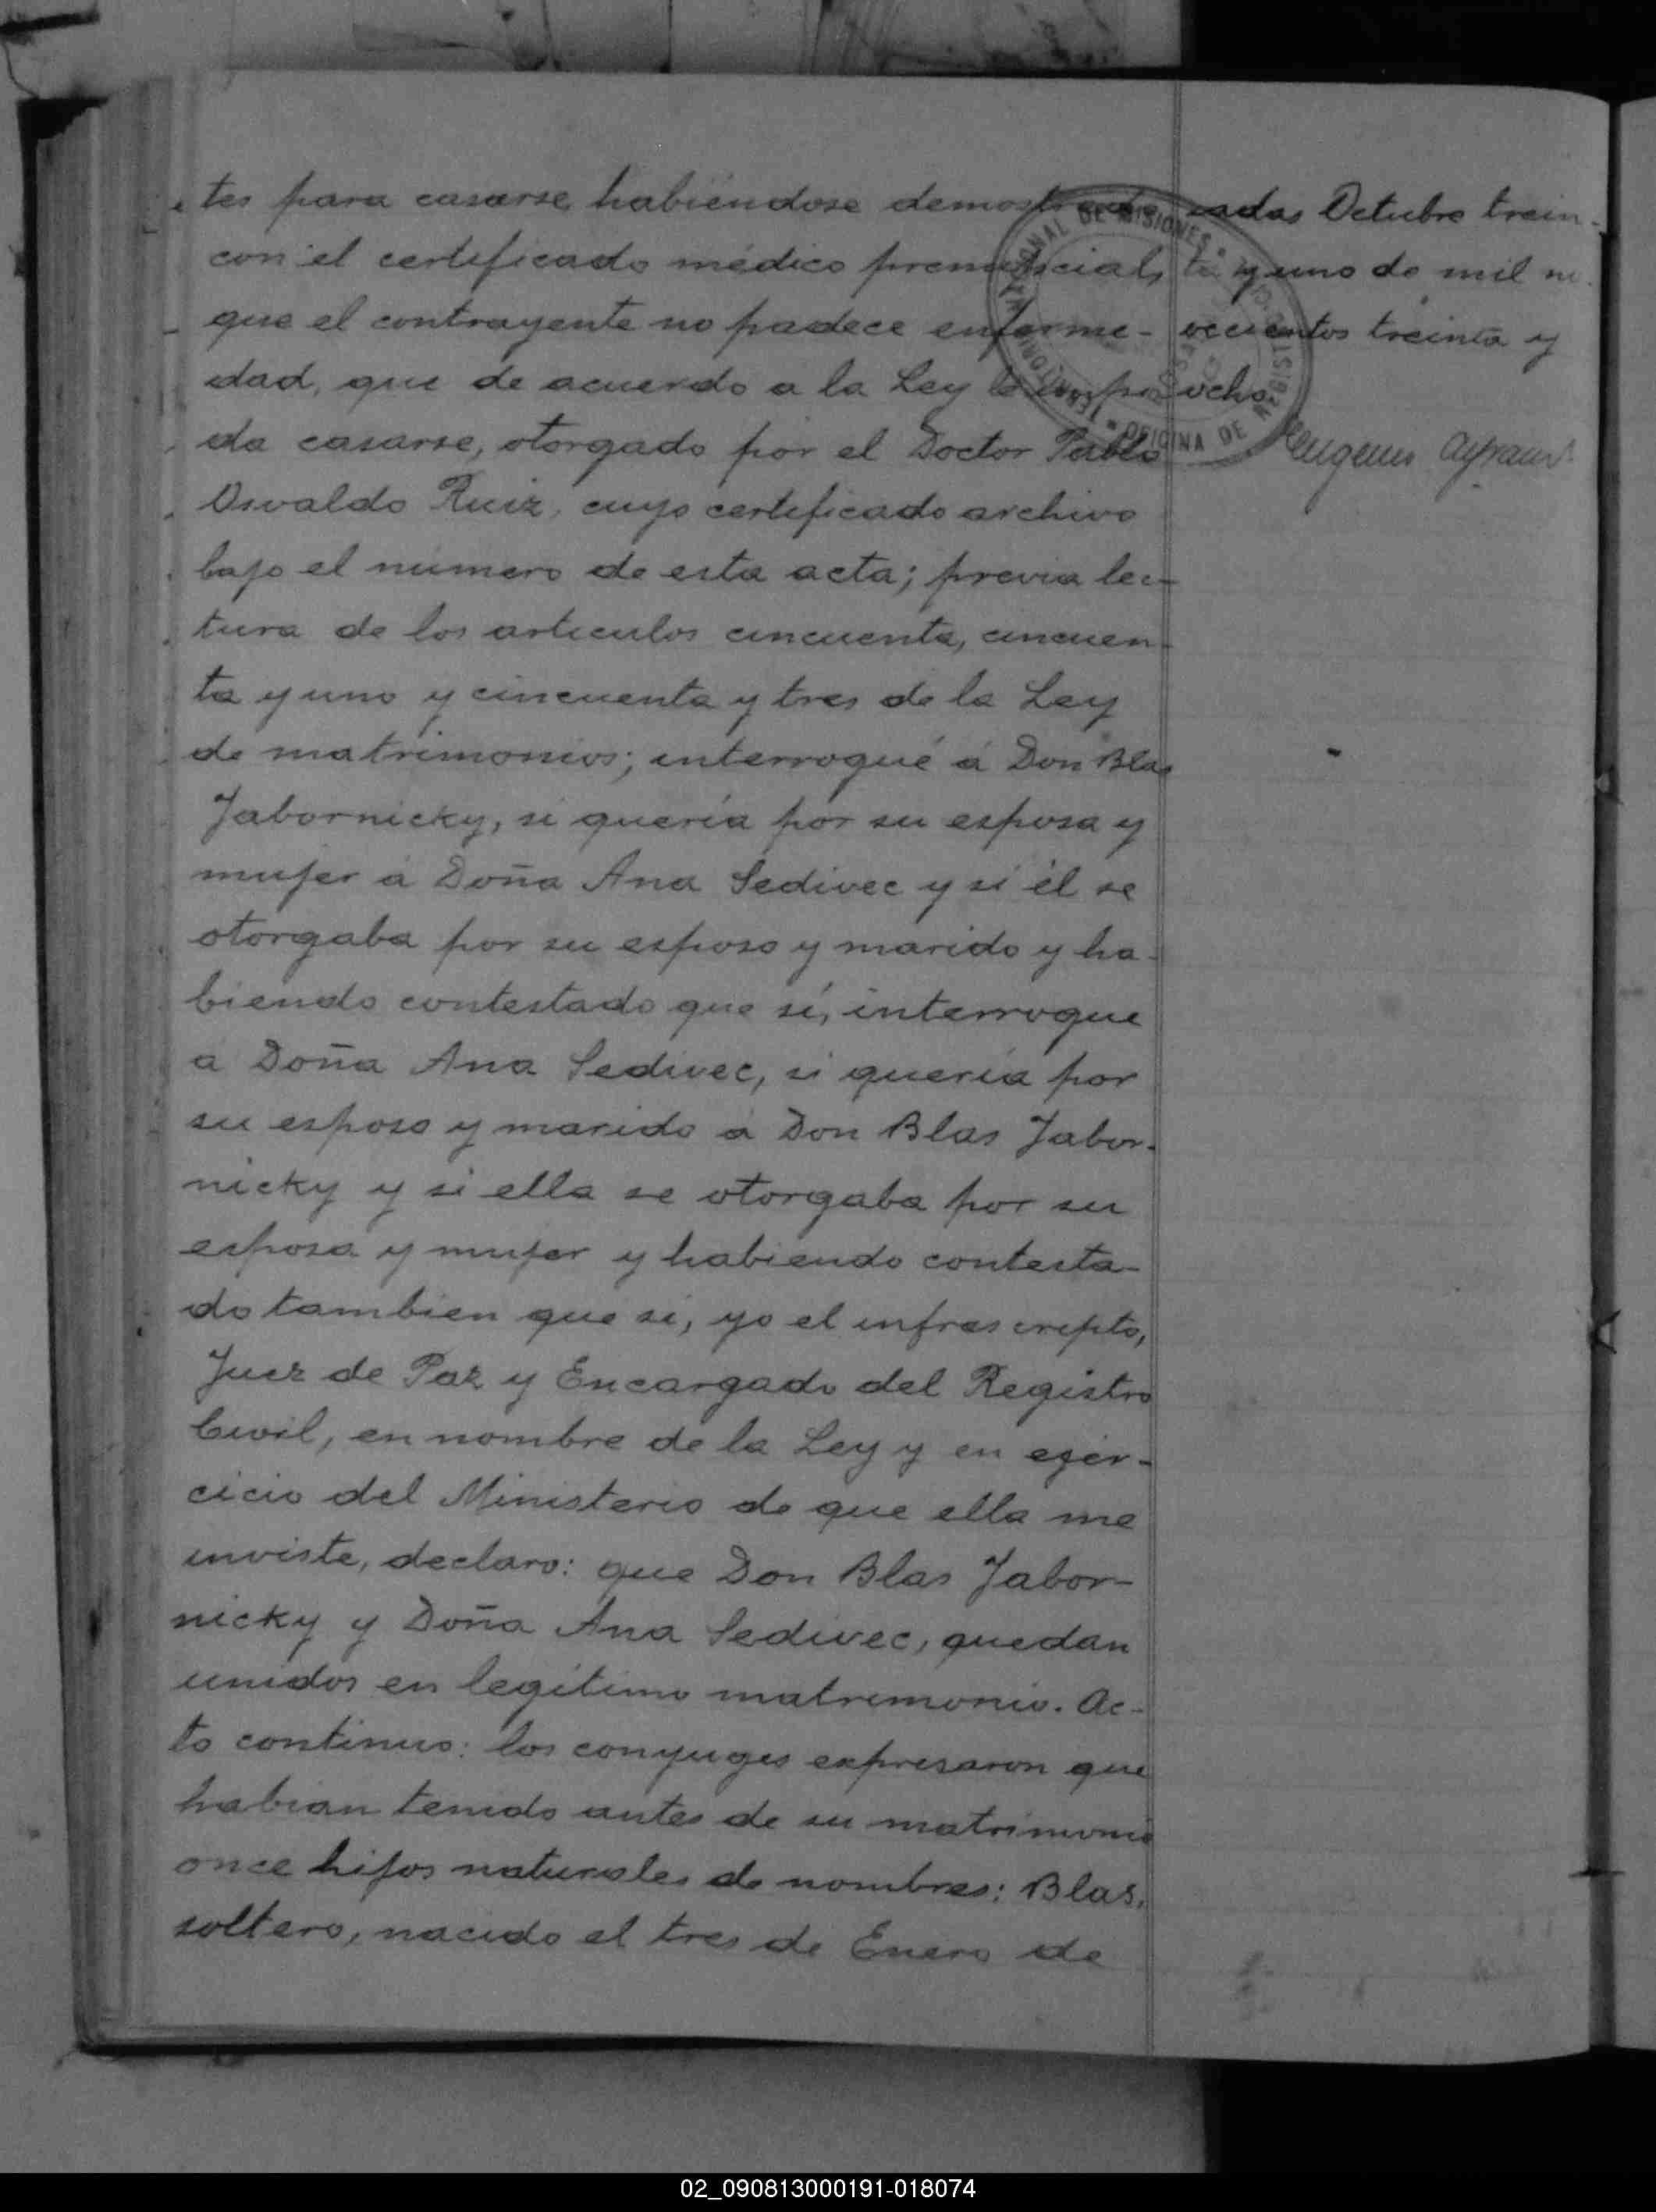 tes para casarse, habiéndose demostrado
con el certificado médico prenupcial,
que el contrayente no padece enferme-
dad, que de acuerdo a la Ley le impi
da casarse, otorgado por el Doctor Pablo
Osvaldo Ruiz, cuyo certificado archivo
bajo el número de esta acta; previa lec-
tura de los articulos cincuenta, cincuen-
ta y uno y cincuenta y tres de la Ley
de matrimonios; interrogué á Don Blas
Jabornicky, si quería por su esposa y
mujer á Doña Ana Sedivec y si él se
otorgaba por su esposo y marido y ha-
biendo contestado que sí, interrogue
á Doña Ana Sedivec, si quería por
su esposo y marido á Don Blas Jabor-
nicky y si ella se otorgaba por su
esposa y mujer y habiendo contesta-
do tambien que si, yo el infrascripto,
Juez de Paz y Encargado del Registro
Civil, en nombre de la Ley y en ejer-
cicio del Ministerio de que ella me
inviste, declaro: que Don Blas Jabor-
nicky y Doña Ana Sedivec, quedan
unidos en legítimo matrimonio. Ac-
to continuo: los conyuges expresaron que
habian tenido antes de su matrimonio
once hijos naturales de nombres: Blas,
soltero, nacido el tres de Enero de
sadas Octubre trein-
ta y uno de mil no
vecientos treinta y
ocho
Eugenio
NACIONAL DE MISIONES
OFICINA DE REGISTRO
02_090813000191-018074